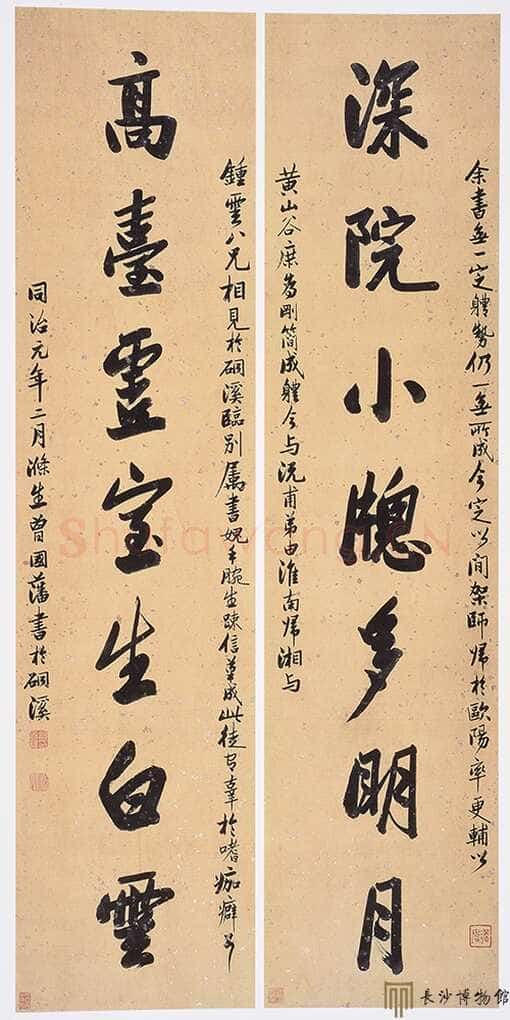 深院小窻多明月
余書無一定體勢仍一無所成今定以間架師歸於歐陽率更輔以
黃山谷庶為剛簡成體今与沅甫弟由淮南歸湘与
鍾雲八兄相見於硐溪臨別屬書媿手腕生疎信筆成此徒有辜於嗜痂癖多
高臺虛室生白雲
同治元年二月滌生曾國藩書於硐溪
Shufawang.CN
長沙博物館